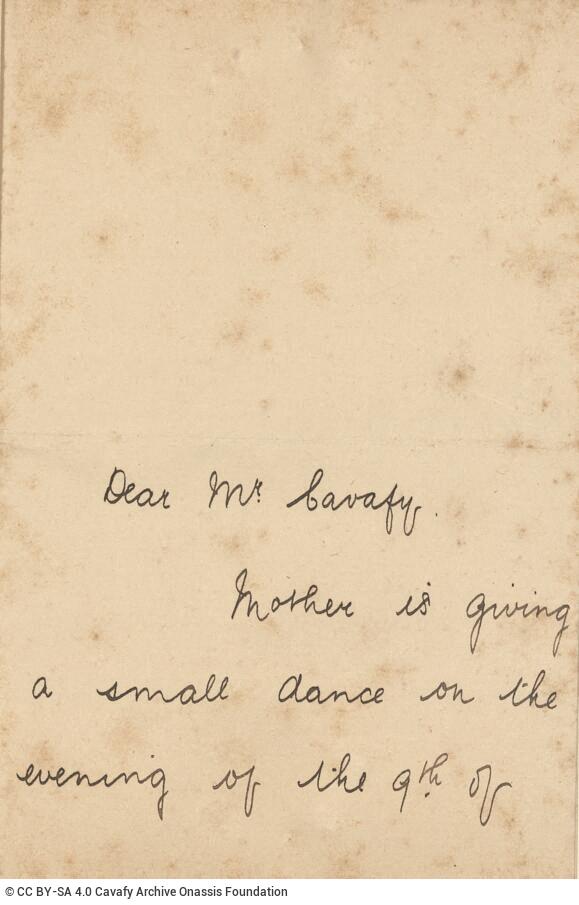 Dear Mr. Cavafy.
Mother is giving
a small dance on the
evening of the 9th. of
© CC BY-SA 4.0 Cavafy Archive Onassis Foundation